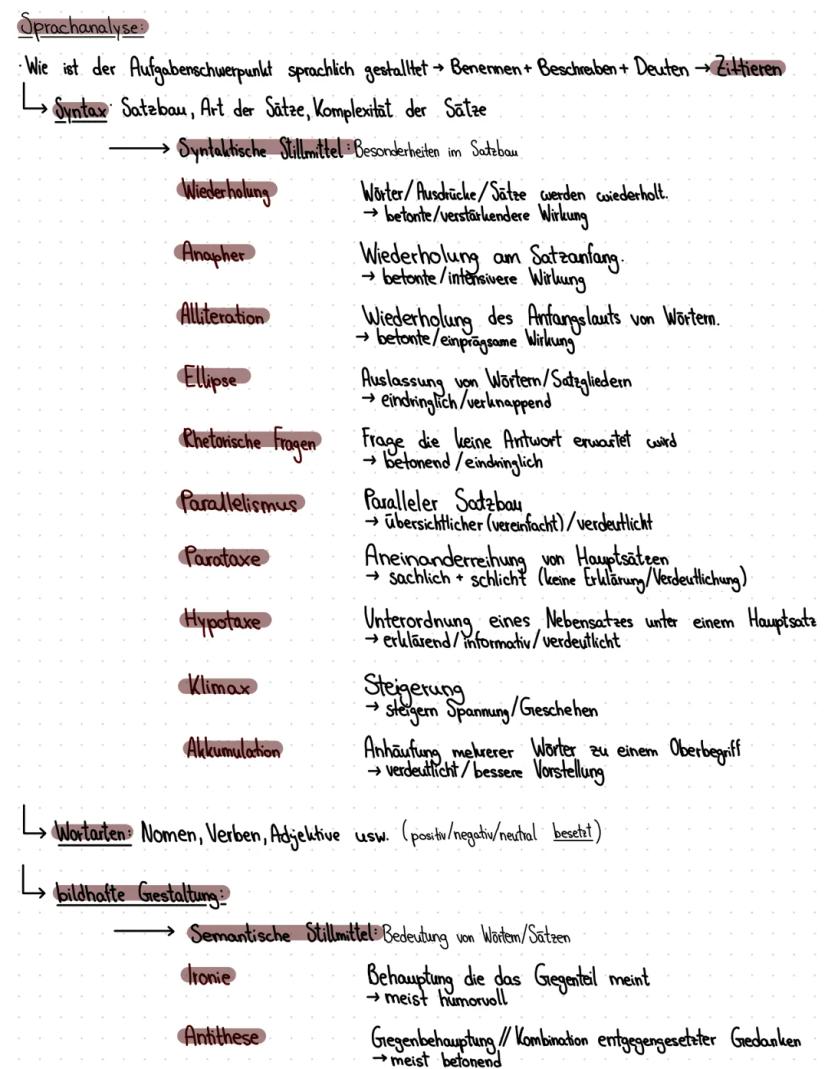 Sprachanalyse:
· Wie ist der Aufgabenschwerpunkt sprachlich gestalltet → Benennen + Beschreiben + Deuten → Zittieren
↳ Syntax: Satzbau, Art der Sätze, Komplexität der Sätze
→ Syntaktische Stillmittel: Besonderheiten im Satzbau
Wiederholung Wörter/Ausdrücke/Sätze werden wiederholt.
→ betonte/verstärkendere Wirkung
Anapher Wiederholung am Satzanfang.
→ betonte/intensivere Wirkung
Alliteration Wiederholung des Anfangslauts von Wörtern.
→ betonte/einprägsame Wirkung
Ellipse Auslassung von Wörtern/Satzgliedern
→ eindringlich/verknappend
Rhetorische Fragen Frage die keine Antwort erwartet wird
→ betonend/eindringlich
Parallelismus Paralleler Satzbau
→ übersichtlicher (vereinfacht)/verdeutlicht
Parataxe Aneinanderreihung von Hauptsätzen
→ sachlich + schlicht (keine Erklärung/Verdeutlichung)
Hypotaxe Unterordnung eines Nebensatzes unter einem Hauptsatz
→ erklärend/informativ/verdeutlicht
Klimax Steigerung
→ steigern Spannung/Geschehen
Akkumulation Anhäufung mehrerer Wörter zu einem Oberbegriff
→ verdeutlicht/bessere Vorstellung
↳ Wortarten: Nomen, Verben, Adjektive usw. (positiv/negativ/neutral besetzt)
↳ bildhafte Gestaltung:
→ Semantische Stillmittel: Bedeutung von Wörtern/Sätzen
Ironie Behauptung die das Gegenteil meint
→ meist humorvoll
Antithese Gegenbehauptung // Kombination entgegengesetzter Gedanken
→ meist betonend